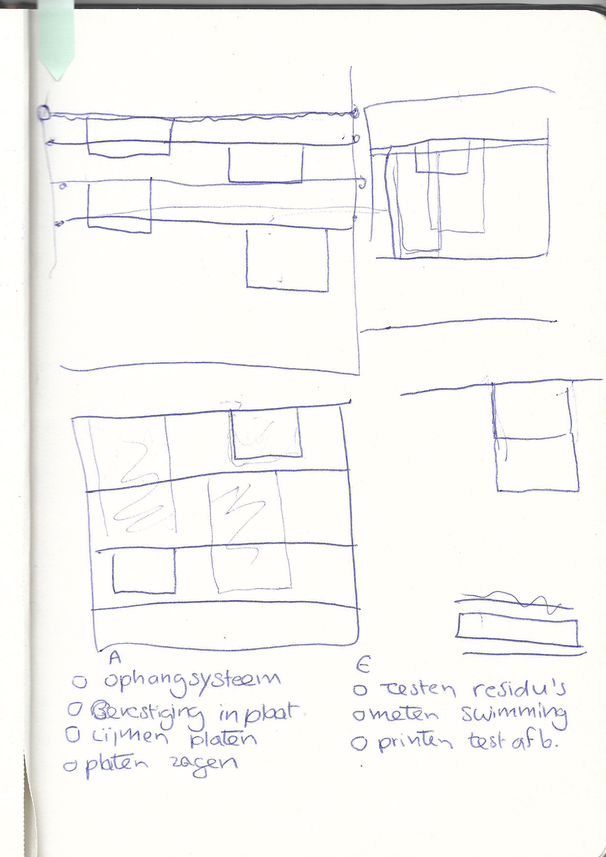 A
o ophangsysteem
o Bevestiging in plaat.
o Lijmen platen
o platen zagen
E
o testen residu's
o meten swimming
o printen test afb.